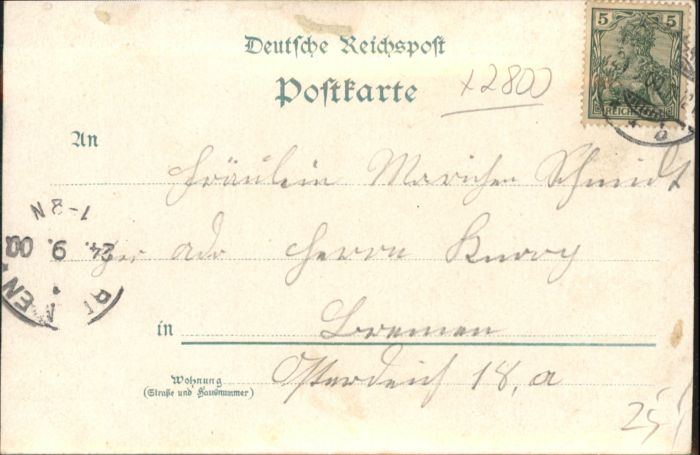 Deutsche Reichspost
Postkarte
x2800
5 5
REICHSPOST
An
Fräulein Mariechen Schmidt
per adr Herrn Knory
in Bremen
Wohnung
(Straße und Hausnummer)
Osterdeich 18, a
24. 9. 00
7-8 N
25,